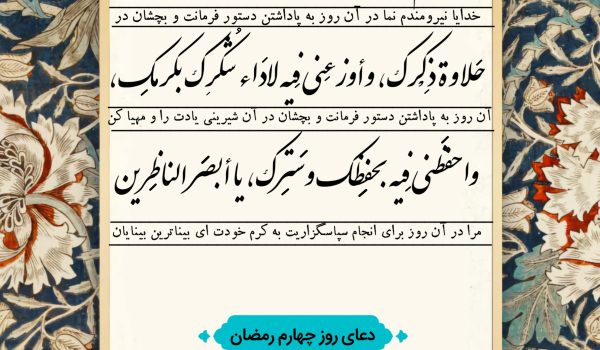 خدایا نیرومندم نما در آن روز به پاداشتن دستور فرمانت و بچشان در
حَلاوة ذِکرِک، وأوزعنی فیه لاداء شُکرِک بکرمک،
آن روز به پاداشتن دستور فرمانت و بچشان در آن شیرینی یادت را و مهیا کن
واحفَظنی فیه بحفِظک وسَترِک، یا أبصَر الناظِرین
مرا در آن روز برای انجام سپاسگزاریت به کرم خودت ای بیناترین بینایان
دعای روز چهارم رمضان